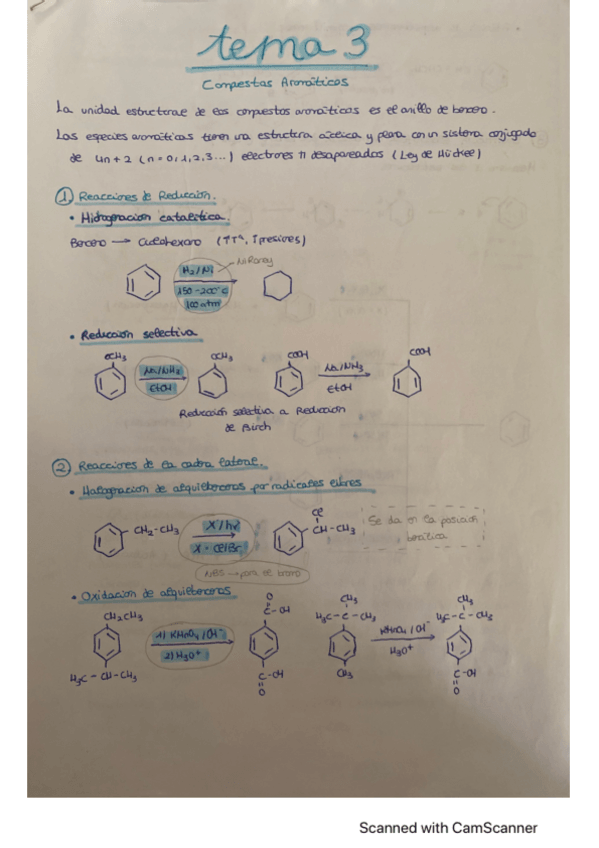 tema 3
Compestos Aromáticos
La unidad estructural de los compuestos aromáticos es el anillo de benceno.
Las especies aromáticas tienen una estructura cíclica y plana con un sistema conjugado
de 4n+2 (n=0,1,2,3...) electrones π desapareados (Ley de Hückel)
1 Reacciones de Reducción.
• Hidrogenacion catalítica.
Benceno → Ciclohexano (↑Tª, ↑presiones)
H2/Ni
Ni Raney
150-200°C
100 atm
• Reducción selectiva
OCH3 Na/NH3 EtOH OCH3 COOH Na/NH3 EtOH COOH
Reducción selectiva a Reducción
de Birch
2 Reacciones de la cadena lateral.
• Halogenación de alquilbencenos por radicales libres
CH2-CH3 X/hν X=Cl/Br Cl CH-CH3
Se da en la posición
bencílica
NBS → para el bromo
• Oxidación de alquilbencenos
CH2CH3 1) KMnO4/OH⁻ 2) H3O⁺ O C-OH CH3 H3C-C-CH3 KMnO4/OH⁻ H3O⁺ CH3 H3C-C-CH3
H3C-CH-CH3 C-OH O CH3 C-OH O
Scanned with CamScanner